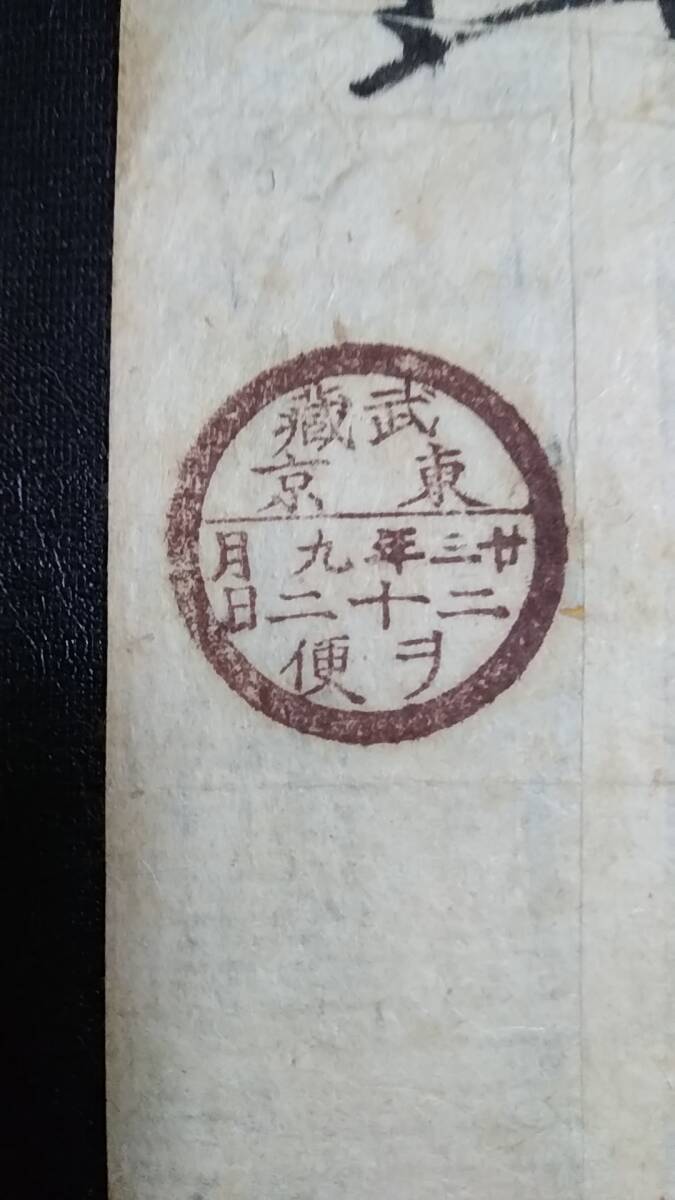 武藏
東京
廿三年九月
二十二日
ヲ便